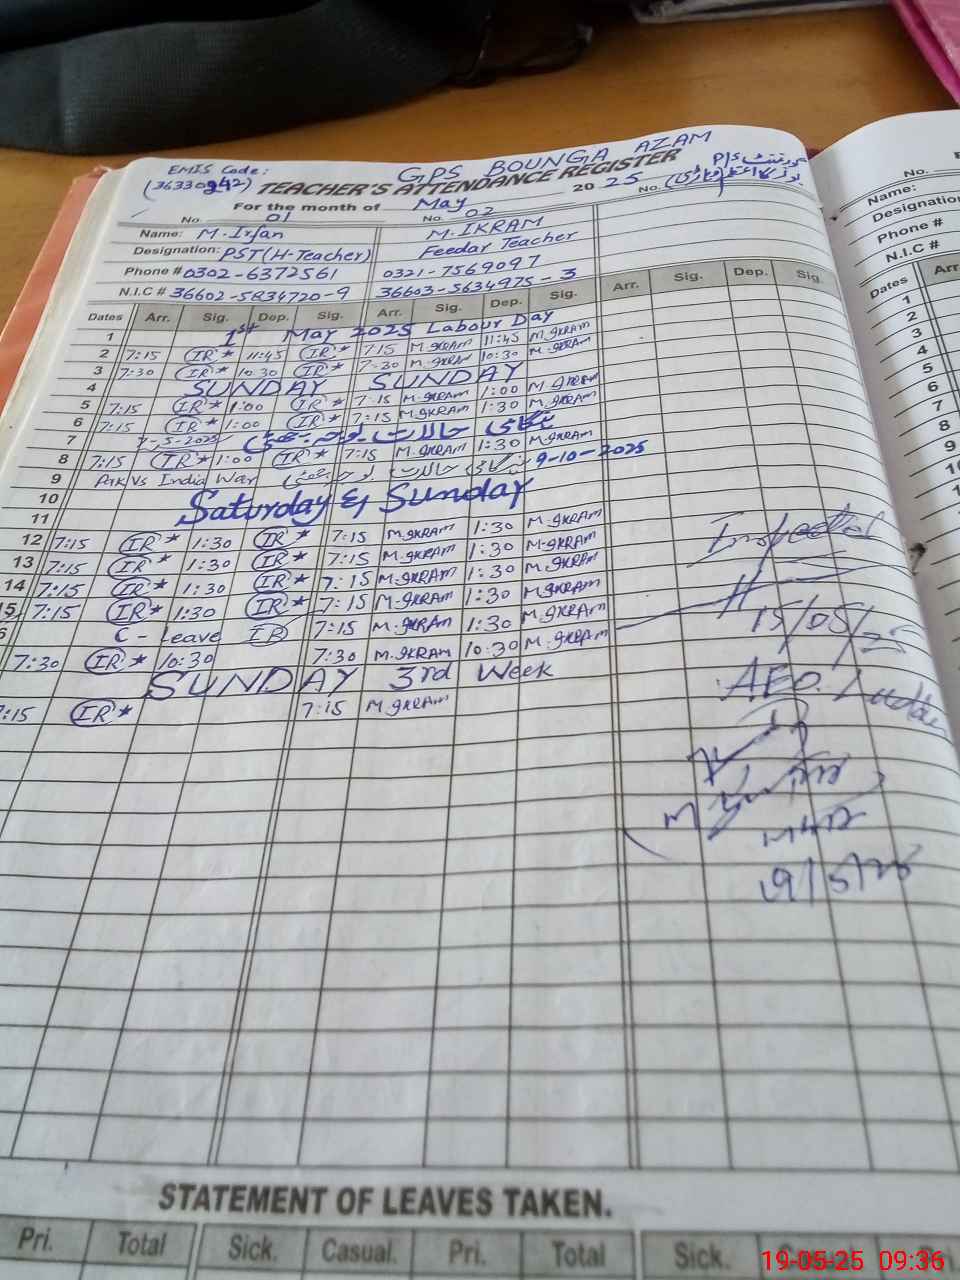 EMIS Code: GPS BOUNGA AZAM
(36330242) TEACHER'S ATTENDANCE REGISTER گورنمنٹ P/S
For the month of May 2025 No.
No. 01 No. 02
Name: M. Irfan M. IKRAM
Designation: PST (H-Teacher) Feedar Teacher
Phone # 0302-6372561 0321-7569097
N.I.C # 36602-5834720-9 36603-5634975-3
Dates Arr. Sig. Dep. Sig. Arr. Sig. Dep. Sig. Arr. Sig. Dep. Sig.
1 1st May 2025 Labour Day
2 7:15 IR* 11:45 IR* 7:15 M.IKRAM 11:45 M.IKRAM
3 7:30 IR* 10:30 IR* 7:30 M.IKRAM 10:30 M.IKRAM
4 SUNDAY SUNDAY
5 7:15 IR* 1:00 IR* 7:15 M.IKRAM 1:00 M.IKRAM
6 7:15 IR* 1:00 IR* 7:15 M.IKRAM 1:30 M.IKRAM
7 7-5-2025 ہنگامی حالات
8 7:15 IR* 1:00 IR* 7:15 M.IKRAM 1:30 M.IKRAM
9 Pak Vs India War ہنگامی حالات 9-10-2025
10 Saturday & Sunday
11
12 7:15 IR* 1:30 IR* 7:15 M.IKRAM 1:30 M.IKRAM
13 7:15 IR* 1:30 IR* 7:15 M.IKRAM 1:30 M.IKRAM
14 7:15 IR* 1:30 IR* 7:15 M.IKRAM 1:30 M.IKRAM
15 7:15 IR* 1:30 IR* 7:15 M.IKRAM 1:30 M.IKRAM
6 C-Leave IR 7:15 M.IKRAM 1:30 M.IKRAM
7:30 IR* 10:30 7:30 M.IKRAM 10:30 M.IKRAM
SUNDAY 3rd Week
7:15 IR* 7:15 M.IKRAM
15/05/25
AEO
19/5/25
STATEMENT OF LEAVES TAKEN.
Pri. Total Sick. Casual. Pri. Total Sick.
No.
Name:
Designation
Phone #
N.I.C #
Dates Arr.
1
2
3
4
5
6
7
8
9
10
19-05-25 09:36